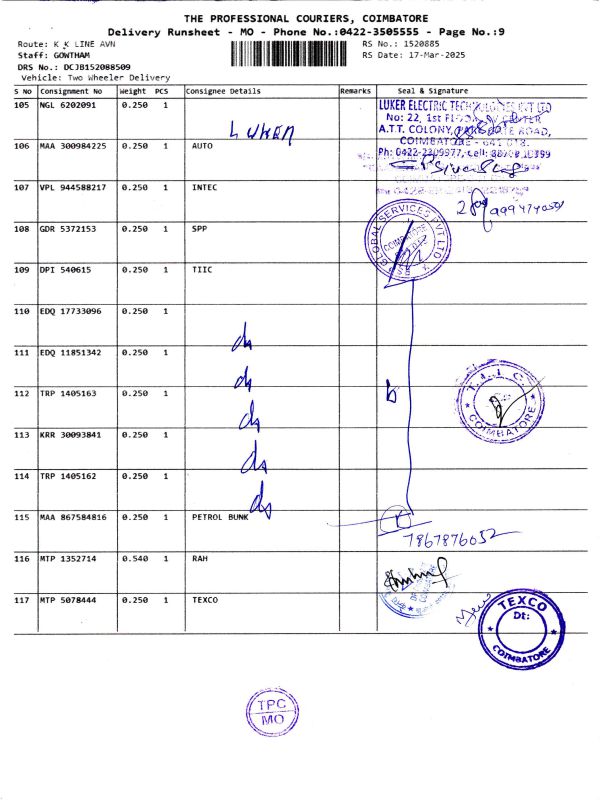 THE PROFESSIONAL COURIERS, COIMBATORE
Delivery Runsheet - MO - Phone No.:0422-3505555 - Page No.:9
Route: K K LINE AVN
RS No.: 1520885
Staff: GOWTHAM
RS Date: 17-Mar-2025
DRS No.: DCJB152088509
Vehicle: Two Wheeler Delivery
S NO Consignment No Weight PCS Consignee Details Remarks Seal & Signature
105 NGL 6202091 0.250 1
LUKER
LUKER ELECTRIC TECHNOLOGIES PVT LTD
No: 22, 1st FLOOR,
A.T.T. COLONY, ROAD,
COIMBATORE - 641 018.
Ph: 0422-2209977, Cell:
106 MAA 300984225 0.250 1 AUTO
107 VPL 944588217 0.250 1 INTEC
108 GDR 5372153 0.250 1 SPP
GLOBAL SERVICES PVT LTD
COIMBATORE
109 DPI 540615 0.250 1 TIIC
110 EDQ 17733096 0.250 1
do
111 EDQ 11851342 0.250 1
do
112 TRP 1405163 0.250 1
do
T.I.I.C.
COIMBATORE
113 KRR 30093841 0.250 1
do
114 TRP 1405162 0.250 1
do
115 MAA 867584816 0.250 1 PETROL BUNK
7867876052
116 MTP 1352714 0.540 1 RAH
117 MTP 5078444 0.250 1 TEXCO
TEXCO
Dt:
COIMBATORE
TPC
MO